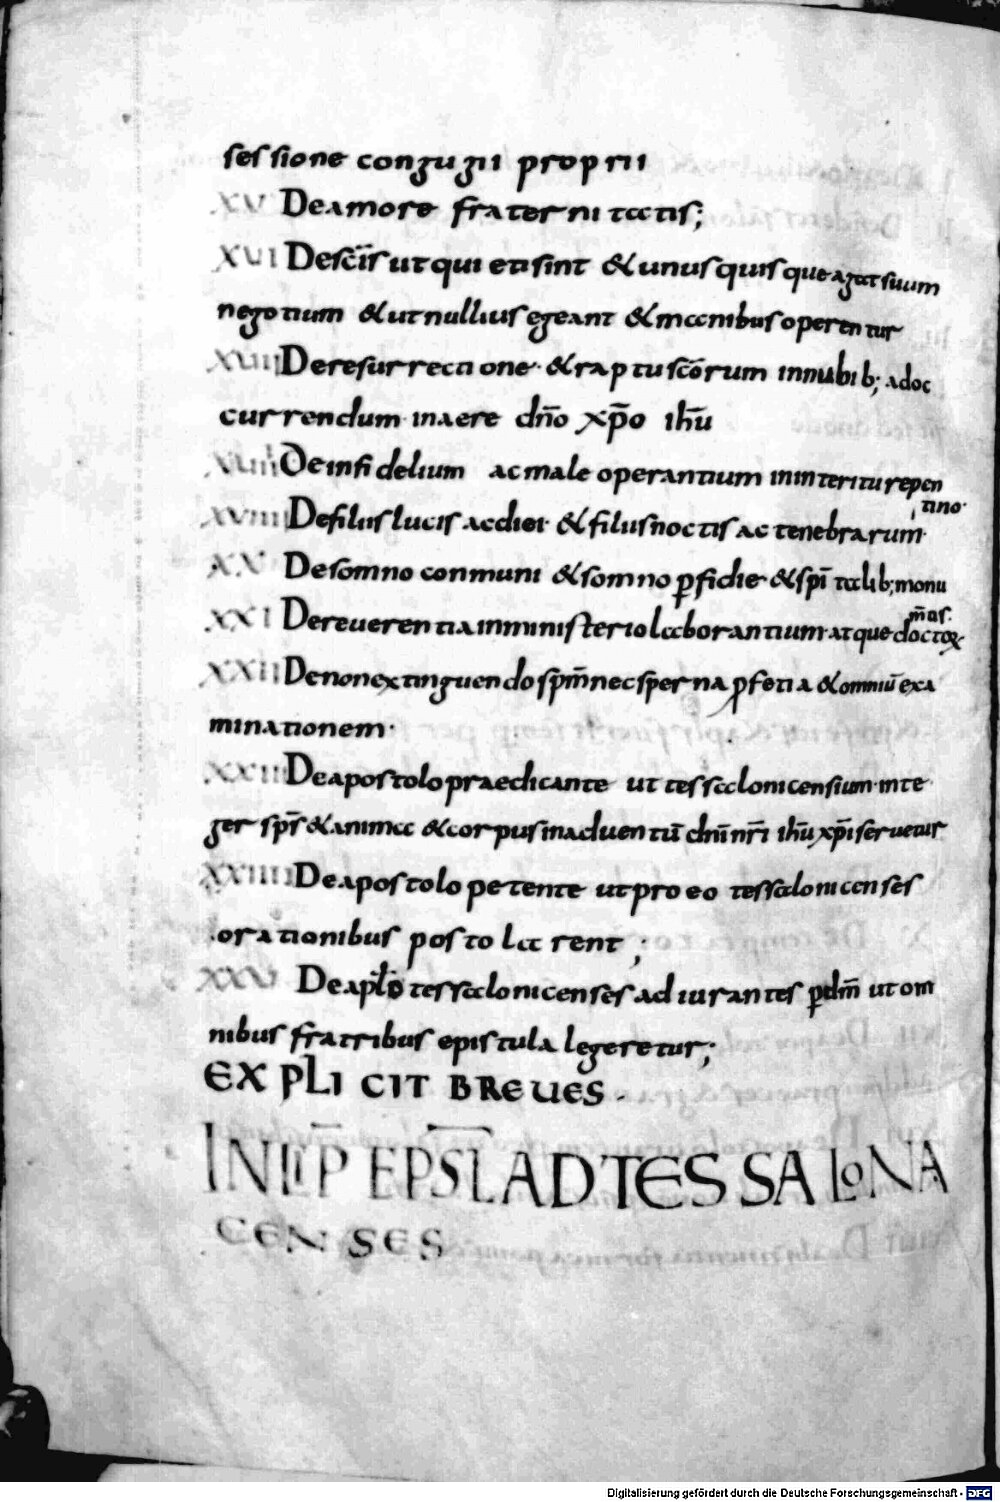 sessione coniugii proprii
XV De amore fraternitatis;
XVI De sc̄is ut qui eti sint & unusquisque agat suum
negotium & ut nullius egeant & manibus operentur
XVII De resurrectione & raptu sc̄orum in nubib; ad oc
currendum in aere dn̄o xp̄o ih̄u
XVIII De infidelium ac male operantium in interitu repen
tino
XVIIII De filiis lucis ac diei & filiis noctis ac tenebrarum
XX De somno conmuni & somno p̲fidie & sp̄italib; monu
m̄tas.
XXI De reuerentia in ministerio laborantium atque doctoꝝ
XXII De non extinguendo sp̄m nec sperna p̲fetia & omniū exa
minationem
XXIII De apostolo praedicante ut tessalonicensium inte
ger sp̄s & anima & corpus in aduentū dn̄i nr̄i ih̄u xp̄i seruetur
XXIIII De apostolo petente ut pro eo tessalonicenses
orationibus postularent;
XXV De ap̄lo tessalonicenses adiurantes p̲ dm̄ ut om
nibus fratribus epistula legeretur;
EXPLICIT BREUES
INCIP̄ EPS̄L AD TESSALONA
CENSES
Digitalisierung gefördert durch die Deutsche Forschungsgemeinschaft - DFG